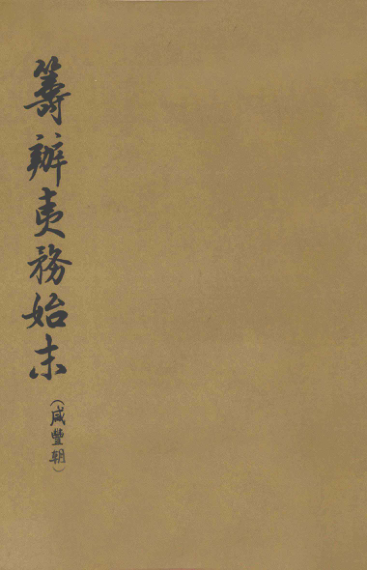 籌辦夷務始末
（咸豐朝）